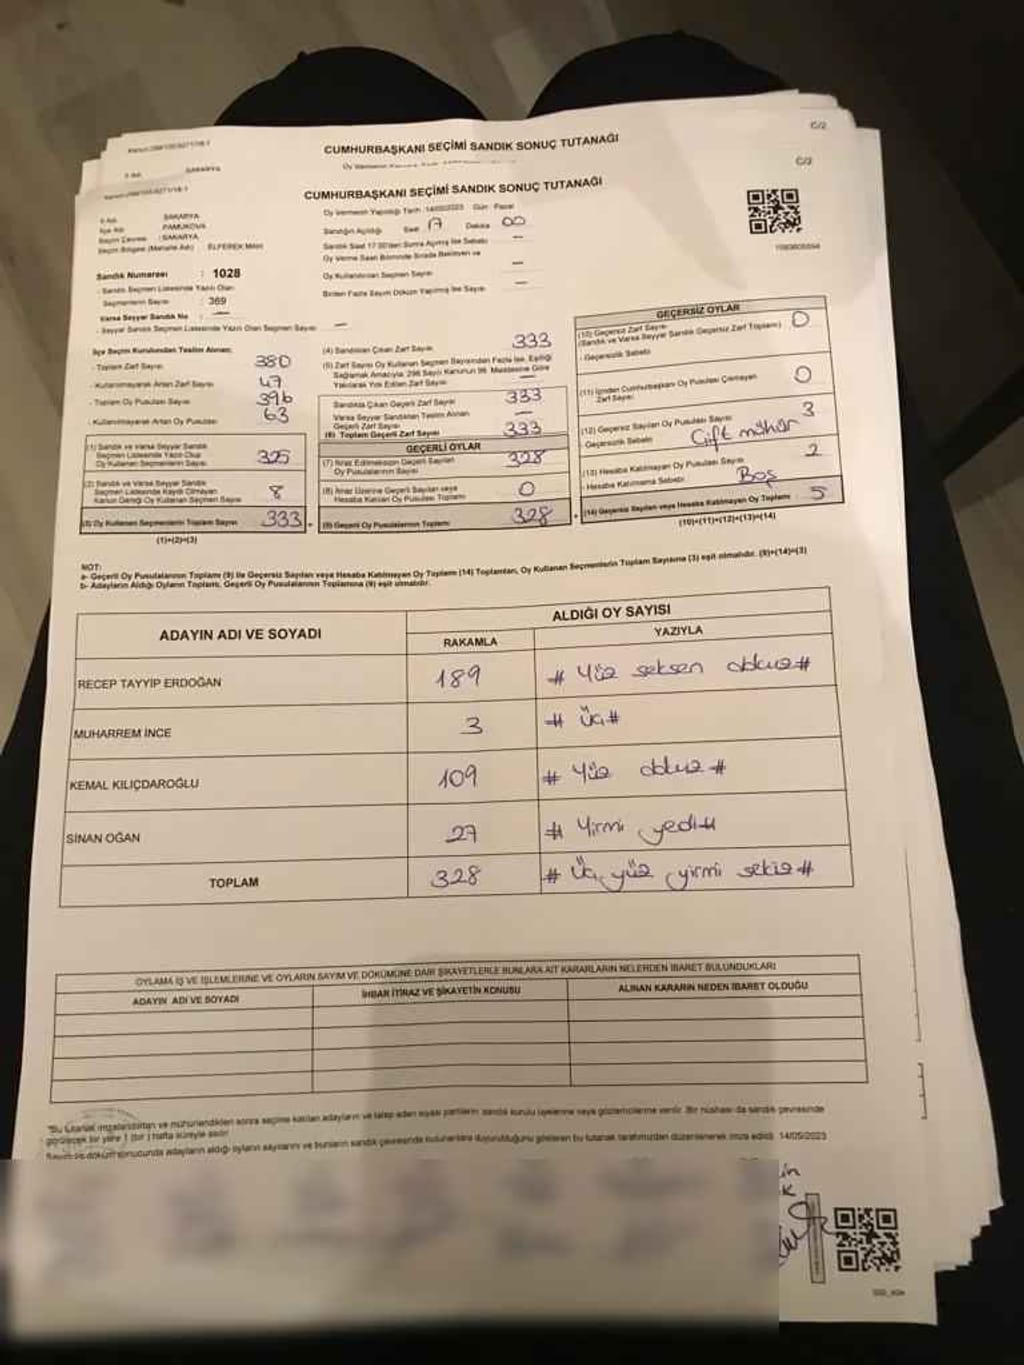 C/2
CUMHURBAŞKANI SEÇİMİ SANDIK SONUÇ TUTANAĞI
SAKARYA
C/2
CUMHURBAŞKANI SEÇİMİ SANDIK SONUÇ TUTANAĞI
İl Adı : SAKARYA
İlçe Adı : PAMUKOVA
Seçim Çevresi : SAKARYA
Seçim Bölgesi (Mahalle Adı) : ELPEREK
Oy Vermenin Yapıldığı Tarih :14/05/2023 Gün : Pazar
Sandığın Açıldığı Saat 17 Dakika 00
Sandık Saat 17.00'den Sonra Açılmış İse Sebebi —
Oy Verme Saati Bitiminde Sırada Bekleyen ve
Oy Kullandırılan Seçmen Sayısı —
Birden Fazla Sayım Döküm Yapılmış İse Sayısı —
Sandık Numarası : 1028
- Sandık Seçmen Listesinde Yazılı Olan
Seçmenlerin Sayısı : 369
Varsa Seyyar Sandık No : —
- Seyyar Sandık Seçmen Listesinde Yazılı Olan Seçmen Sayısı: —
İlçe Seçim Kurulundan Teslim Alınan;
- Toplam Zarf Sayısı 380
- Kullanılmayarak Artan Zarf Sayısı 47
- Toplam Oy Pusulası Sayısı 396
- Kullanılmayarak Artan Oy Pusulası 63
(1) Sandık ve Varsa Seyyar Sandık
Seçmen Listesinde Yazılı Olup
Oy Kullanan Seçmenlerin Sayısı 325
(2) Sandık ve Varsa Seyyar Sandık
Seçmen Listesinde Kaydı Olmayan
Kanun Gereği Oy Kullanan Seçmen Sayısı 8
(3) Oy Kullanan Seçmenlerin Toplam Sayısı 333
(1)+(2)=(3)
(4) Sandıktan Çıkan Zarf Sayısı 333
(5) Zarf Sayısı Oy Kullanan Seçmen Sayısından Fazla İse, Eşitliği
Sağlamak Amacıyla, 298 Sayılı Kanunun 98. Maddesine Göre
Yakılarak Yok Edilen Zarf Sayısı —
Sandıkta Çıkan Geçerli Zarf Sayısı 333
Varsa Seyyar Sandıktan Teslim Alınan
Geçerli Zarf Sayısı —
(6) Toplam Geçerli Zarf Sayısı 333
GEÇERLİ OYLAR
(7) İtiraz Edilmeksizin Geçerli Sayılan
Oy Pusulalarının Sayısı 328
(8) İtiraz Üzerine Geçerli Sayılan veya
Hesaba Katılan Oy Pusulası Toplamı 0
(9) Geçerli Oy Pusulalarının Toplamı 328
GEÇERSİZ OYLAR
(10) Geçersiz Zarf Sayısı 0
(Sandık ve Varsa Seyyar Sandık Geçersiz Zarf Toplamı)
- Geçersizlik Sebebi
(11) İçinden Cumhurbaşkanı Oy Pusulası Çıkmayan
Zarf Sayısı 0
(12) Geçersiz Sayılan Oy Pusulası Sayısı 3
- Geçersizlik Sebebi Çift mühür
(13) Hesaba Katılmayan Oy Pusulası Sayısı 2
- Hesaba Katılmama Sebebi Boş
(14) Geçersiz Sayılan veya Hesaba Katılmayan Oy Toplamı 5
(10)+(11)+(12)+(13)=(14)
NOT:
a- Geçerli Oy Pusulalarının Toplamı (9) ile Geçersiz Sayılan veya Hesaba Katılmayan Oy Toplamı (14) Toplamları, Oy Kullanan Seçmenlerin Toplam Sayısına (3) eşit olmalıdır. (9)+(14)=(3)
b- Adayların Aldığı Oyların Toplamı, Geçerli Oy Pusulalarının Toplamına (9) eşit olmalıdır.
ADAYIN ADI VE SOYADI ALDIĞI OY SAYISI
RAKAMLA YAZIYLA
RECEP TAYYİP ERDOĞAN 189 # Yüz seksen dokuz #
MUHARREM İNCE 3 # Üç #
KEMAL KILIÇDAROĞLU 109 # Yüz dokuz #
SİNAN OĞAN 27 # Yirmi yedi #
TOPLAM 328 # Üç yüz yirmi sekiz #
OYLAMA İŞ VE İŞLEMLERİNE VE OYLARIN SAYIM VE DÖKÜMÜNE DAİR ŞİKAYETLERLE BUNLARA AİT KARARLARIN NELERDEN İBARET BULUNDUKLARI
ADAYIN ADI VE SOYADI İHBAR İTİRAZ VE ŞİKAYETİN KONUSU ALINAN KARARIN NEDEN İBARET OLDUĞU
"Bu tutanak imzalandıktan ve mühürlendikten sonra seçime katılan adayların ve talep eden siyasi partilerin sandık kurulu üyelerine veya gözlemcilerine verilir. Bir nüshası da sandık çevresinde
görülecek bir yere 1 (bir) hafta süreyle asılır.
Sayım ve döküm sonucunda adayların aldığı oyların sayılarını ve bunların sandık çevresinde bulunanlara duyurulduğunu gösteren bu tutanak tarafımızdan düzenlenerek imza edildi. 14/05/2023